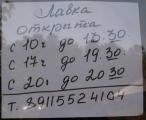 Лавка
открыта
с 10ч до 13.30
с 17ч до 19.30
с 20ч до 20 30
т. 89115524104